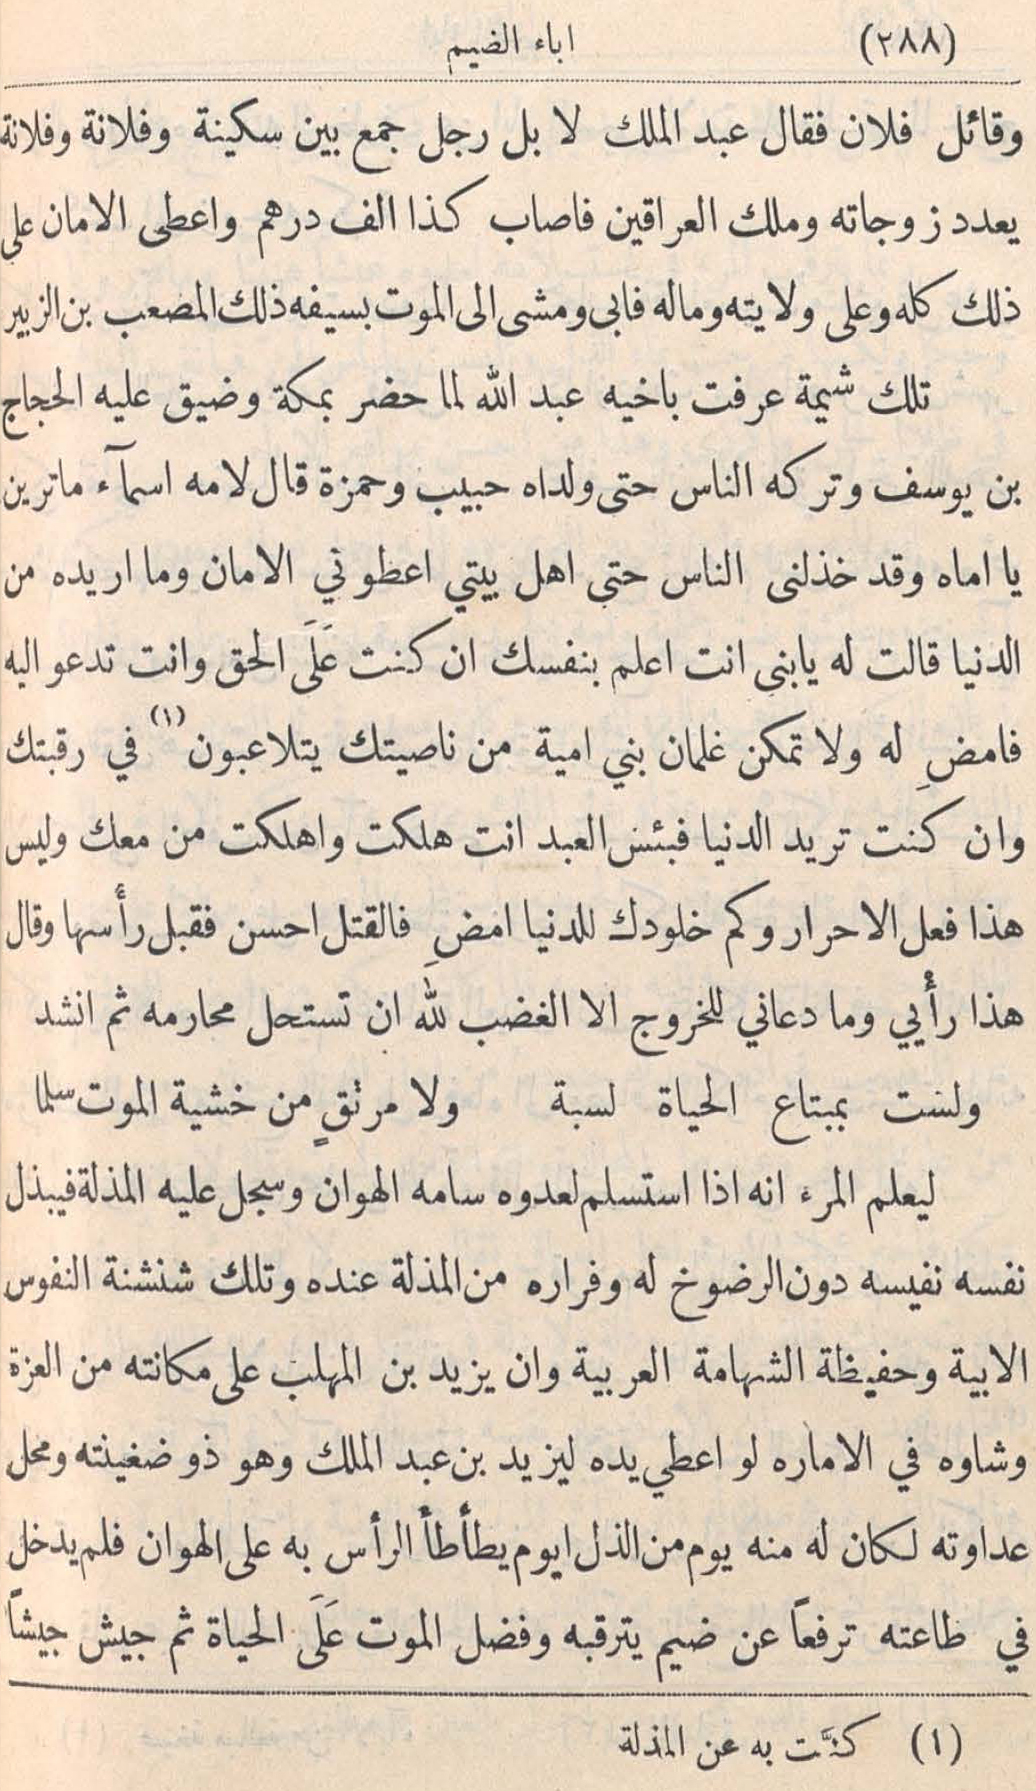 (٢٨٨) اباء الضيم
وقائل فلان فقال عبد الملك لا بل رجل جمع بين سكينة وفلانة وفلانة
يعدد زوجاته وملك العراقين فاصاب كذا الف درهم واعطى الامان على
ذلك كله وعلى ولايته وماله فابى ومشى الى الموت بسيفه ذلك المصعب بن الزبير
تلك شيمة عرفت باخيه عبد الله لما حضر بمكة وضيق عليه الحجاج
بن يوسف وتركه الناس حتى ولداه حبيب وحمزة قال لامه اسمآء ماترين
يا اماه وقد خذلنى الناس حتى اهل بيتي اعطوني الامان وما اريده من
الدنيا قالت له يابنى انت اعلم بنفسك ان كنت عَلَى الحق وانت تدعو اليه
فامضِ له ولا تمكن غلمان بني امية من ناصيتك يتلاعبون (١) في رقبتك
وان كنت تريد الدنيا فبئس العبد انت هلكت واهلكت من معك وليس
هذا فعل الاحرار وكم خلودك للدنيا امضِ فالقتل احسن فقبل رأسها وقال
هذا رأيي وما دعاني للخروج الا الغضب لله ان تستحل محارمه ثم انشد
ولست بمبتاع الحياة لسبة ولا مرتقٍ من خشية الموت سلما
ليعلم المرء انه اذا استسلم لعدوه سامه الهوان وسجل عليه المذلة فيبذل
نفسه نفيسه دون الرضوخ له وفراره من المذلة عنده وتلك شنشنة النفوس
الابية وحفيظة الشهامة العربية وان يزيد بن المهلب على مكانته من العزة
وشاوه في الاماره لو اعطي يده ليزيد بن عبد الملك وهو ذو ضغينته ومحل
عداوته لكان له منه يوم من الذل ايوم يطأطأ الرأس به على الهوان فلم يدخل
في طاعته ترفعاً عن ضيم يترقبه وفضل الموت عَلَى الحياة ثم جيش جيشاً
(١) كنَّت به عن المذلة